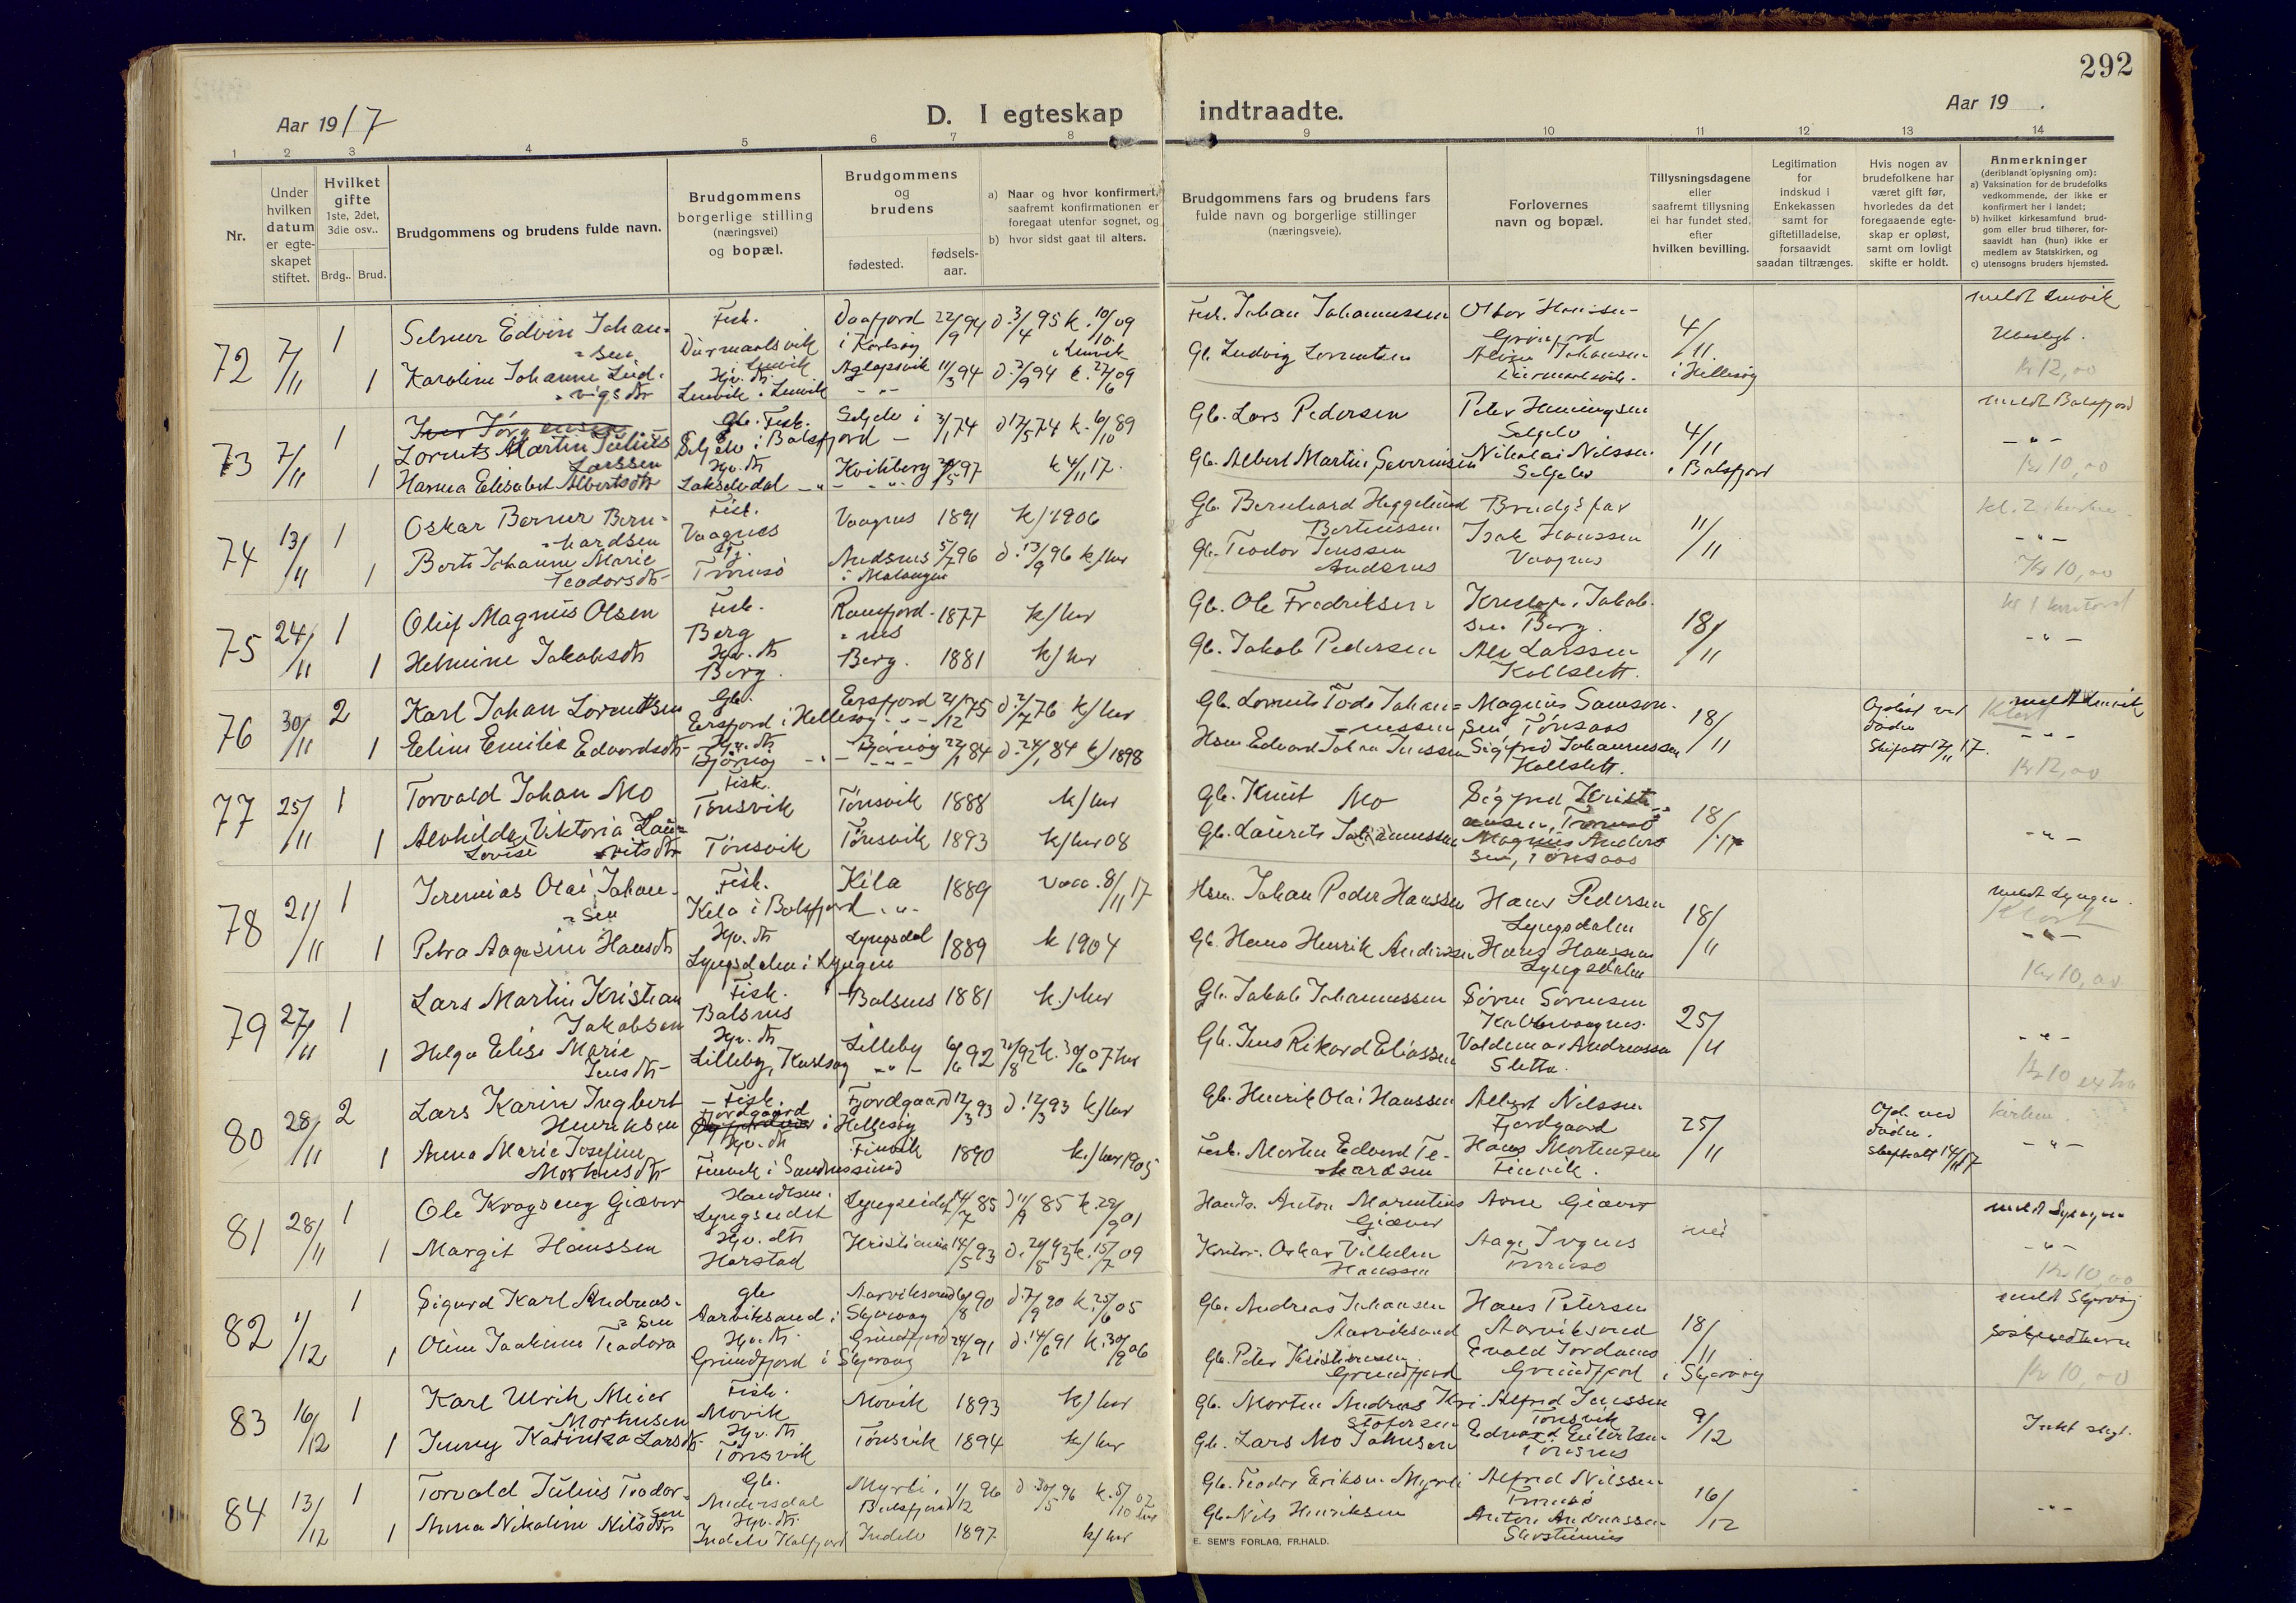 292
Aar 1917
D. I egteskap indtraadte.
Aar 19 .
1 2 3 4 5 6 7 8 9 10 11 12 13 14
Nr.
Under hvilken datum er egteskapet stiftet.
Hvilket gifte 1ste, 2det, 3die osv..
Brdg.. Brud.
Brudgommens og brudens fulde navn.
Brudgommens borgerlige stilling (næringsvei) og bopæl.
Brudgommens og brudens
fødested.
fødsels-aar.
a) Naar og hvor konfirmert, saafremt konfirmationen er foregaat utenfor sognet, og
b) hvor sidst gaat til alters.
Brudgommens fars og brudens fars fulde navn og borgerlige stillinger (næringsveie).
Forlovernes navn og bopæl.
Tillysningsdagene eller saafremt tillysning ei har fundet sted, efter hvilken bevilling.
Legitimation for indskud i Enkekassen samt for giftetilladelse, forsaavidt saadan tiltrænges.
Hvis nogen av brudefolkene har været gift før, hvorledes da det foregaaende egteskap er opløst, samt om lovligt skifte er holdt.
Anmerkninger (deriblandt oplysning om):
a) Vaksination for de brudefolks vedkommende, der ikke er konfirmert her i landet;
b) hvilket kirkesamfund brudgom eller brud tilhører, forsaavidt han (hun) ikke er medlem av Statskirken, og
c) utensogns bruders hjemsted.
72 7/11 1 Selmer Edvin Johansen Fisk. Daafjord i Karlsøy 22/9 94 d. 3/4 95 k. 10/10 09 Fisk. Johan Johannessen 4/11 meldt Lenvik
1 Karoline Johanne Ludvigsdtr Hjv. dtr Lenvik i Lenvik Aglapsvik 11/3 94 d. 2/9 94 k. 27/6 09 Gb. Ludvig Lorentsen i Hellesøy Kr 12,00
73 7/11 1 Lorents Martin Julius Larssen Gb. Fisk. Seljelv i Balsfjord Seljelv i 3/1 74 d 17/5 74 k. 6/10 89 Gb. Lars Pedersen Peter Henningsen Seljelv 4/11 meldt Balsfjord
1 Hanna Elisabet Albertsdtr Hjv. dtr Lakselvdal Kvitberg 97 k 4/11 17. Gb. Albert Martin Severinsen Nikolai Nilssen Seljelv i Balsfjord Kr 10,00
74 13/11 1 Oskar Berner Bernhardsen Fisk. Vaagnes Vaagnes 1891 k/1906 Gb. Bernhard Heggelund Bertinussen Brudgs far 11/11
1 Berte Johanne Marie Teodorsdtr Tj. Tromsö Andsnes i Malangen 5/7 96 d. 13/9 96 k/her Gb. Teodor Jenssen Andsnes Isak Hanssen Vaagnes Kr 10,00
75 24/11 1 Oluf Magnus Olsen Fisk. Berg Ramfjordnes 1877 k/her Gb. Ole Fredriksen Kristof. Jakobsen Berg. 18/11
1 Helmine Jakobsdtr Hjv. dtr Berg. Berg. 1881 k/her Gb. Jakob Pedersen Alv Larssen Kollslett.
76 30/11 2 Karl Johan Lorentsen Gb. Ersfjord i Hellesøy Ersfjord 21/12 75 d. 2/7 76 k/her Gb. Lorents Tode Johannessen Magnus Samsonsen, Tönsaas 18/11 Opløst ved døden Skifatt 17/11 17. meldt Lenvik
1 Eline Emilie Edvardsdtr Hjv. dtr Bjørnøy Bjørnøy 22/1 84 d. 24/1 84 k/1898 Hsm. Edvard Johan Jenssen Sigfred Johannessen Kollslett. Kr 12,00
77 25/11 1 Torvald Johan Mo Fisk. Tönsvik Tönsvik 1888 k/her Gb. Knut Mo Sigfred Kristiansen, Tromsö 18/11
1 Alvhilde Viktoria Lovise Lauritsdtr Tönsvik Tönsvik 1893 k/her 08 Gb. Laurits Johannessen Magnus Andersen, Tönsaas
78 21/11 1 Jeremias Olai Johansen Fisk. Kila i Balsfjord Kila 1889 Vacc. 8/11 17 Hsm. Johan Peder Hanssen Hans Pedersen Lyngsdalen 18/11 meldt Lyngen.
1 Petra Aagesine Hansdtr Hjv. dtr Lyngsdalen i Lyngen Lyngsdal 1889 k 1904 Gb. Hans Henrik Andersen Hans Hanssen Lyngsdalen Kr 10,00
79 27/11 1 Lars Martin Kristian Jakobsen Fisk. Balsnes Balsnes 1881 k./her Gb. Jakob Johannessen Sören Sörensen 25/11
1 Helga Elise Marie Jensdtr Hjv. dtr Lilleby, Karlsøy Lilleby 6/6 92 21/8 92 k. 30/6 07 her Gb. Jens Rikard Eliassen Valdemar Andreassen Sletta. Kr 10 extra
80 28/11 2 Lars Karin Ingbert Henriksen Fisk. Fjordgaard i Hellesøy Fjordgaard 12/3 93 d. 12/3 93 k/her Gb. Henrik Olai Hanssen Albert Nilssen Fjordgaard 25/11 Opl. ved døden. Skifatt 14/11 17 kirken.
1 Anna Marie Josefine Mortensdtr Hjv. dtr Finvik i Sandnessund Finvik 1890 k./her 1905 Fisk. Morten Edvard Tekardsen Hans Mortensen Finvik.
81 28/11 1 Ole Kragseng Giæver Handlsm. Lyngseidet Lyngseidet 14/7 85 d 11/9 85 k. 29/9 01 Handls. Anton Marentius Giæver Arne Giæver meldt Lyngen
1 Margit Hanssen Hjv. dtr Harstad Kristiania 14/5 93 d. 20/8 93 k. 15/7 09 Kontor. Oskar Vilhelm Hanssen Aage Tromsö Kr 10,00
82 1/12 1 Sigurd Karl Andreassen gb Aarviksand i Skjervøy Aarviksand 6/8 90 d. 7/9 90 k. 25/6 05 Gb. Andreas Johansen Aarviksand Hans Petersen Aarviksand 18/11 meldt Skjervøy
1 Oline Joakime Teodora Hjv. dtr. Grundfjord i Skjervøy Grundfjord 24/2 91 d. 14/6 91 k. 30/9 06 Gb. Peter Kristiansen Grundfjord Evald Jordans Grundfjord i Skjervøy Kr 10,00
83 16/12 1 Karl Ulrik Meier Mortensen Fisk. Movik Movik 1893 k/her Gb. Morten Andreas Kristofersen Alfred Jenssen Tönsvik 9/12
1 Jenny Katinka Larsdtr Hjv. dtr Tönsvik Tönsvik 1894 k/her Gb. Lars Mo Johnsen Edvard Eilertsen Tönsnes Intet slegt.
84 13/12 1 Torvald Julius Teodorsen Gb. Andersdal Myrli, Balsfjord 1/12 96 d 30/5 96 k. 5/10 02 her Gb. Teodor Eriksen Myrli Alfred Nilssen Tromsö 16/12
1 Anna Nikoline Nilsdtr Hjv. dtr. Indelv Kalfjord Indelv 1897 k/her Gb. Nils Henriksen Anton Andreassen
E. SEM'S FORLAG, FR.HALD.